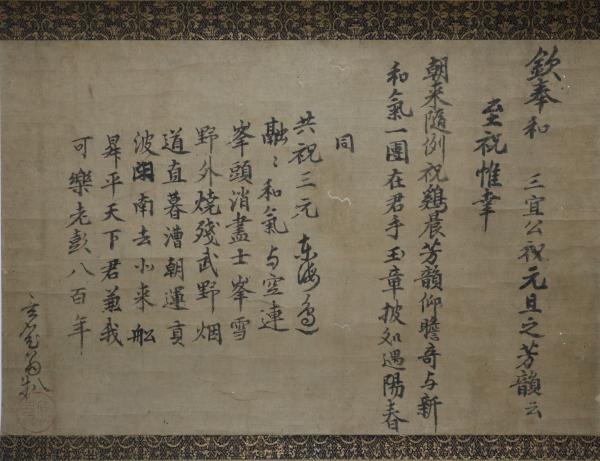 欽奉和　三宜公祝元旦之芳韻云
至祝惟幸
朝来隨例祝鷄晨芳韻仰瞻奇与新
和氣一團在君手玉章披如遇陽春
同
共祝三元
融〻和氣与空連
峯頭消盡士峯雪
野外燒殘武野烟
道直暮漕朝運貢
波 南去小来舩
昇平天下君兼我
可樂老彭八百年